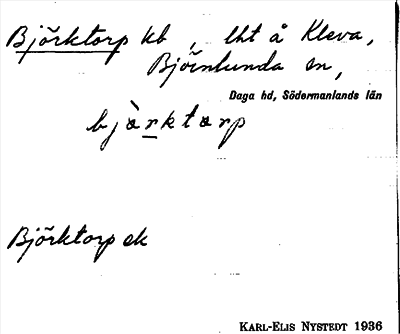 Björktorp kb, lht å Kleva,
Björnlunda sn,
Daga hd, Södermanlands län
bjàrktarp
Björktorp ek
KARL-ELIS NYSTEDT 1936